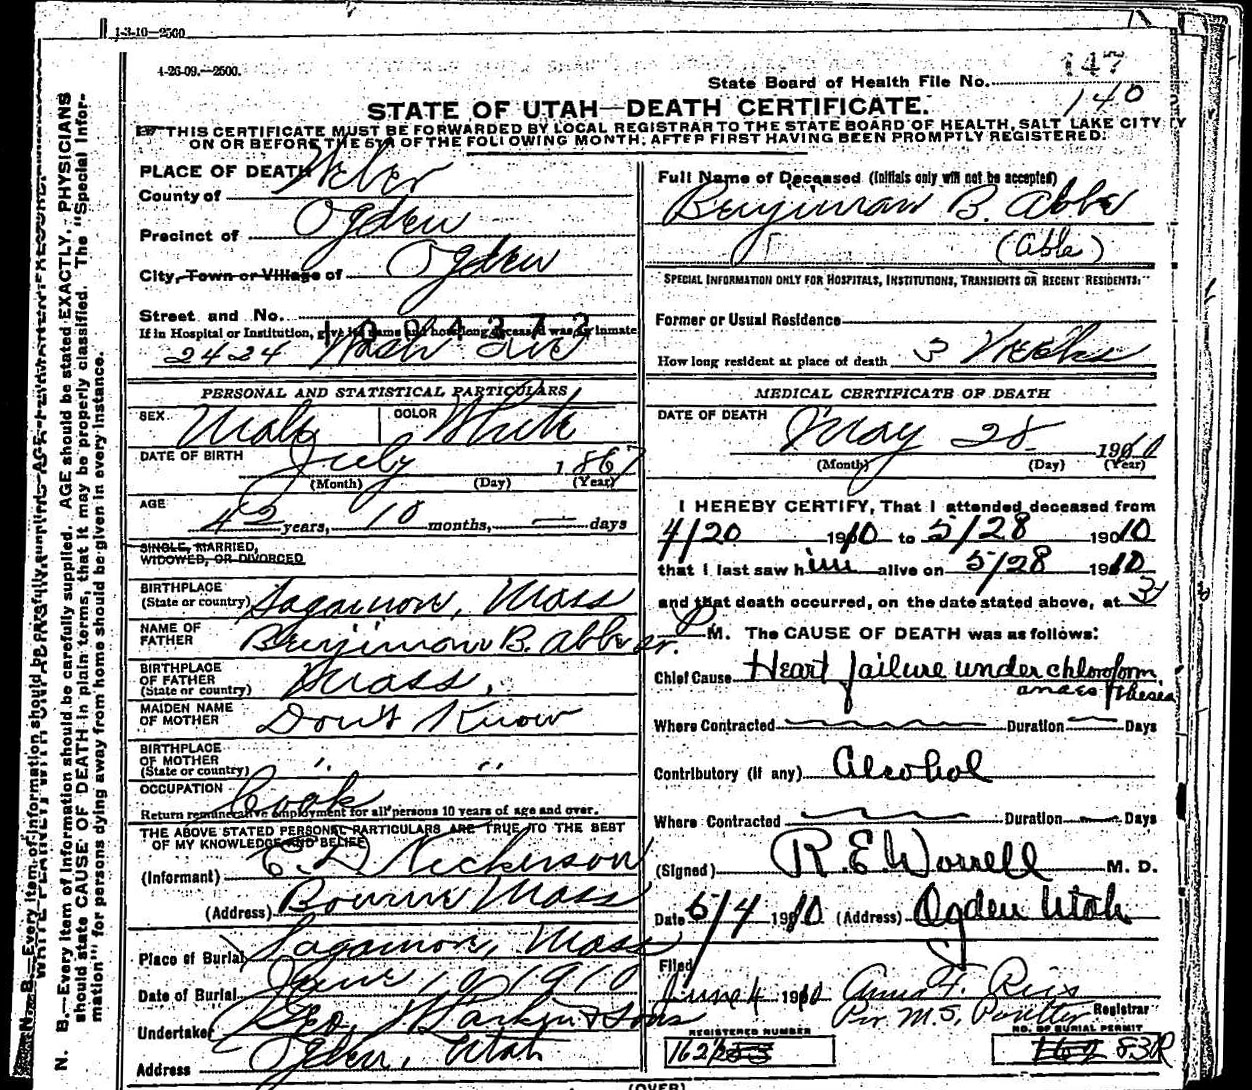 1-3-10—2500
4-26-09.—2500.
State Board of Health File No. 147
140
STATE OF UTAH—DEATH CERTIFICATE.
THIS CERTIFICATE MUST BE FORWARDED BY LOCAL REGISTRAR TO THE STATE BOARD OF HEALTH, SALT LAKE CITY
ON OR BEFORE THE 5TH OF THE FOLLOWING MONTH, AFTER FIRST HAVING BEEN PROMPTLY REGISTERED.
PLACE OF DEATH
County of Weber
Precinct of Ogden
City, Town or Village of Ogden
Street and No.
If in Hospital or Institution, give its name and how long deceased was an inmate
1004372
2424 Wash Ave
PERSONAL AND STATISTICAL PARTICULARS
SEX Male COLOR White
DATE OF BIRTH July 1867
(Month) (Day) (Year)
AGE 42 years, 10 months, — days
SINGLE, MARRIED,
WIDOWED, OR DIVORCED
BIRTHPLACE
(State or country) Sagamore, Mass
NAME OF
FATHER Benjiman B. Abbe sr.
BIRTHPLACE
OF FATHER
(State or country) Mass.
MAIDEN NAME
OF MOTHER Don't Know
BIRTHPLACE
OF MOTHER
(State or country) " "
OCCUPATION Cook
Return remunerative employment for all persons 10 years of age and over.
THE ABOVE STATED PERSONAL PARTICULARS ARE TRUE TO THE BEST
OF MY KNOWLEDGE AND BELIEF
(Informant) E. D. Nickerson
(Address) Bourne Mass
Place of Burial Sagamore, Mass
Date of Burial June 10, 1910
Undertaker Geo. Larkin & Sons
Address Ogden, Utah
Full Name of Deceased (Initials only will not be accepted)
Benjiman B. Abbe
(Able)
SPECIAL INFORMATION ONLY FOR HOSPITALS, INSTITUTIONS, TRANSIENTS OR RECENT RESIDENTS:
Former or Usual Residence
How long resident at place of death 3 Weeks
MEDICAL CERTIFICATE OF DEATH
DATE OF DEATH May 28 1910
(Month) (Day) (Year)
I HEREBY CERTIFY, That I attended deceased from
4/20 1910 to 5/28 1910
that I last saw him alive on 5/28 1910
and that death occurred, on the date stated above, at 3
P M. The CAUSE OF DEATH was as follows:
Chief Cause Heart failure under chloroform
anaesthesia
Where Contracted Duration Days
Contributory (if any) Alcohol
Where Contracted Duration Days
(Signed) R. E. Worrell M. D.
Date 5/4 1910 (Address) Ogden Utah
Filed
June 4 1910 Anna F. Ries
Per M. S. Poulter Registrar
REGISTERED NUMBER
162
NO. OF BURIAL PERMIT
162 830R
(OVER)
N. B.—Every item of information should be carefully supplied. AGE should be stated EXACTLY. PHYSICIANS
should state CAUSE OF DEATH in plain terms, that it may be properly classified. The "Special Infor-
mation" for persons dying away from home should be given in every instance.